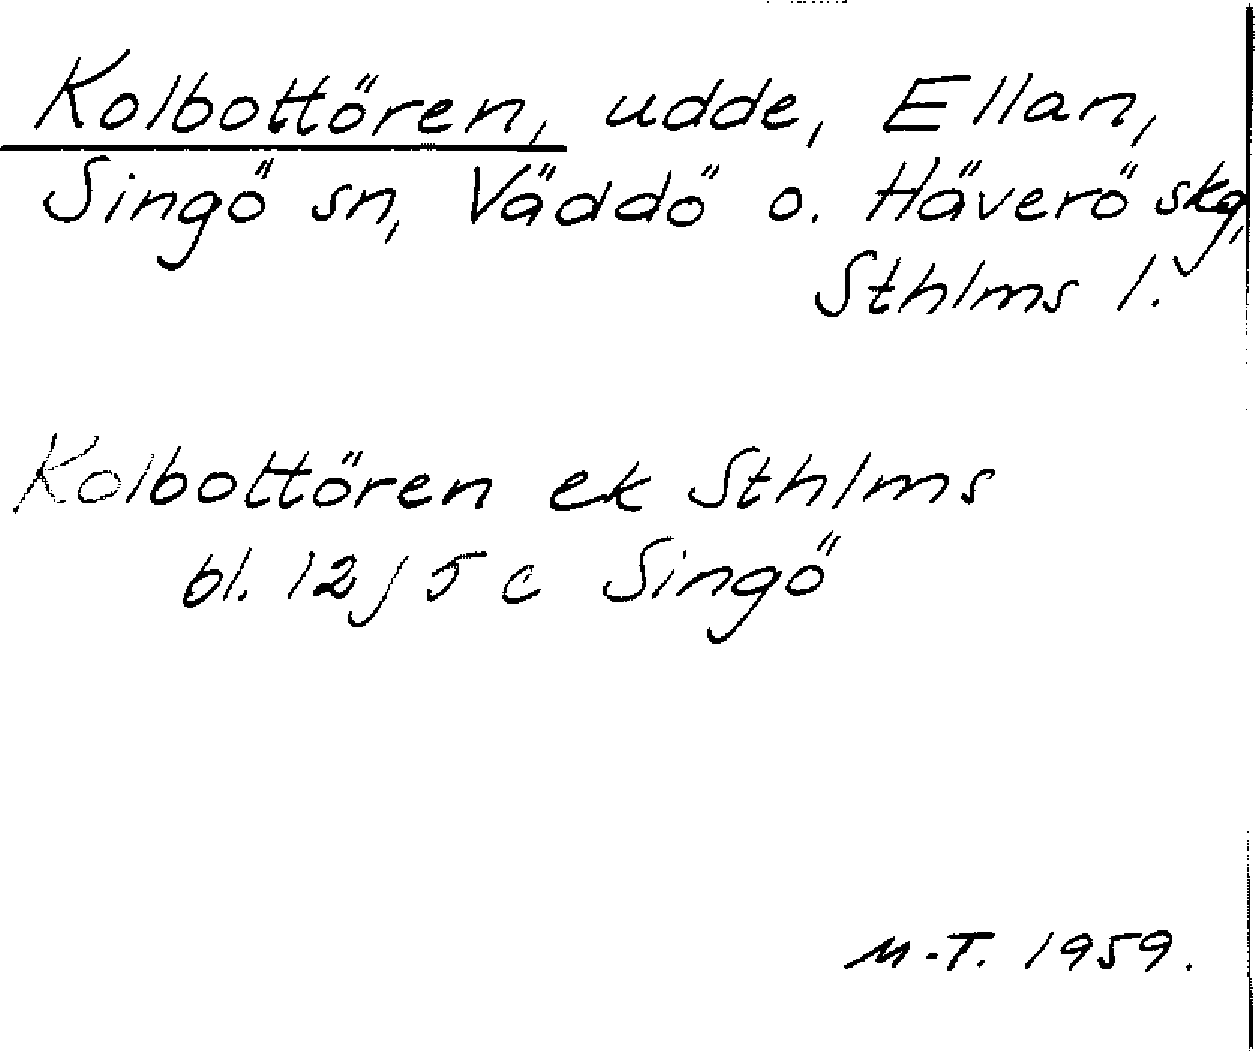 Kolbottören, udde, Ellan,
Singö sn, Väddö o. Häverö skg,
Sthlms l.
Kolbottören ek Sthlms
bl. 12 j 5 c Singö
M.-T. 1959.